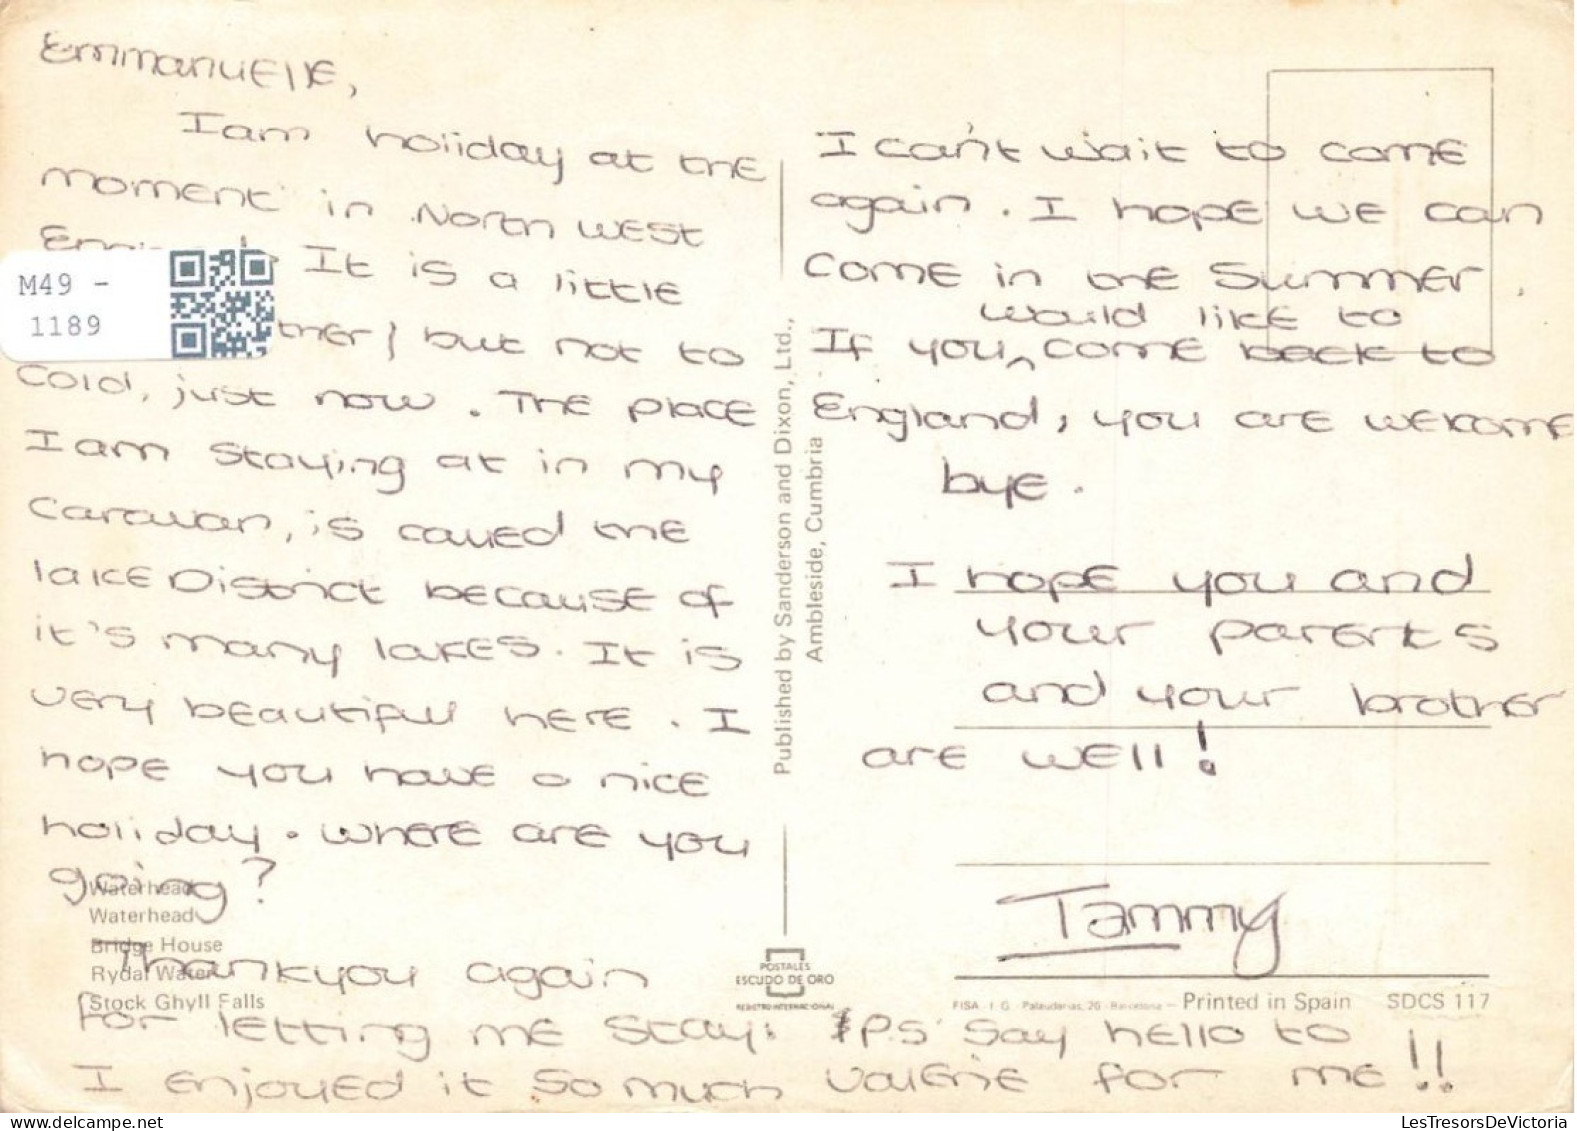 Emmanuelle,
I am holiday at the
moment in North west
It is a little
M49 -
1189
but not to
cold, just now. The place
I am staying at in my
caravan, is called the
lake District because of
it's many lakes. It is
very beautiful here. I
hope you have a nice
holiday. Where are you
going?
Waterhead
Waterhead
Bridge House
Rydal Water
Stock Ghyll Falls
Thankyou again
for letting me stay:
I enjoyed it so much
Published by Sanderson and Dixon, Ltd.,
Ambleside, Cumbria
POSTALES
ESCUDO DE ORO
REGISTRO INTERNACIONAL
I can't wait to come
again. I hope we can
come in the Summer.
would like to
If you ^ come back to
England, you are welcome
bye.
I hope you and
your parents
and your brother
are well!
Tammy
FISA - I. G. - Palaudarias, 26 - Barcelona - Printed in Spain SDCS 117
PS Say hello to
Valerie for me!!
LesTresorsDeVictoria